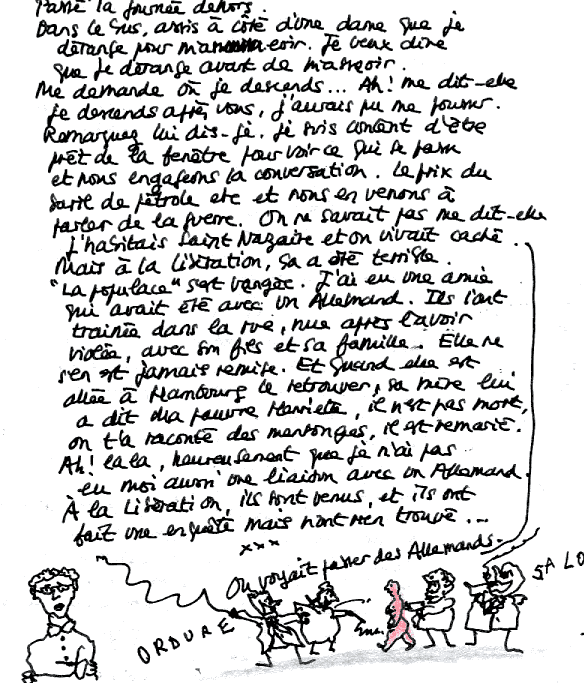 Passé la journée dehors.
Dans le bus, assis à côté d'une dame que je
dérange pour m'asseoir. Je veux dire
que je dérange avant de m'asseoir.
Me demande où je descends... Ah! me dit-elle
je descends après vous, j'aurais pu me pousser.
Remarquez lui dis-je, je suis content d'être
près de la fenêtre pour voir ce qui se passe
et nous engageons la conversation. Le prix du
baril de pétrole etc et nous en venons à
parler de la guerre. On ne savait pas me dit-elle
j'habitais Saint Nazaire et on vivait caché.
Mais à la Libération, ça a été terrible.
"La populace" s'est vengée. J'ai eu une amie
qui avait été avec un Allemand. Ils l'ont
trainée dans la rue, nue après l'avoir
violée, avec son fils et sa famille. Elle ne
s'en est jamais remise. Et quand elle est
allée à Hambourg le retrouver, sa mère lui
a dit Ma pauvre Henriette, il n'est pas mort,
on t'a raconté des mensonges, il est remarié.
Ah! lala, heureusement que je n'ai pas
eu moi aussi une liaison avec un Allemand.
À la Libération, ils sont venus, et ils ont
fait une enquête mais n'ont rien trouvé...
xxx
On voyait passer des Allemands.
ORDURE
SALO